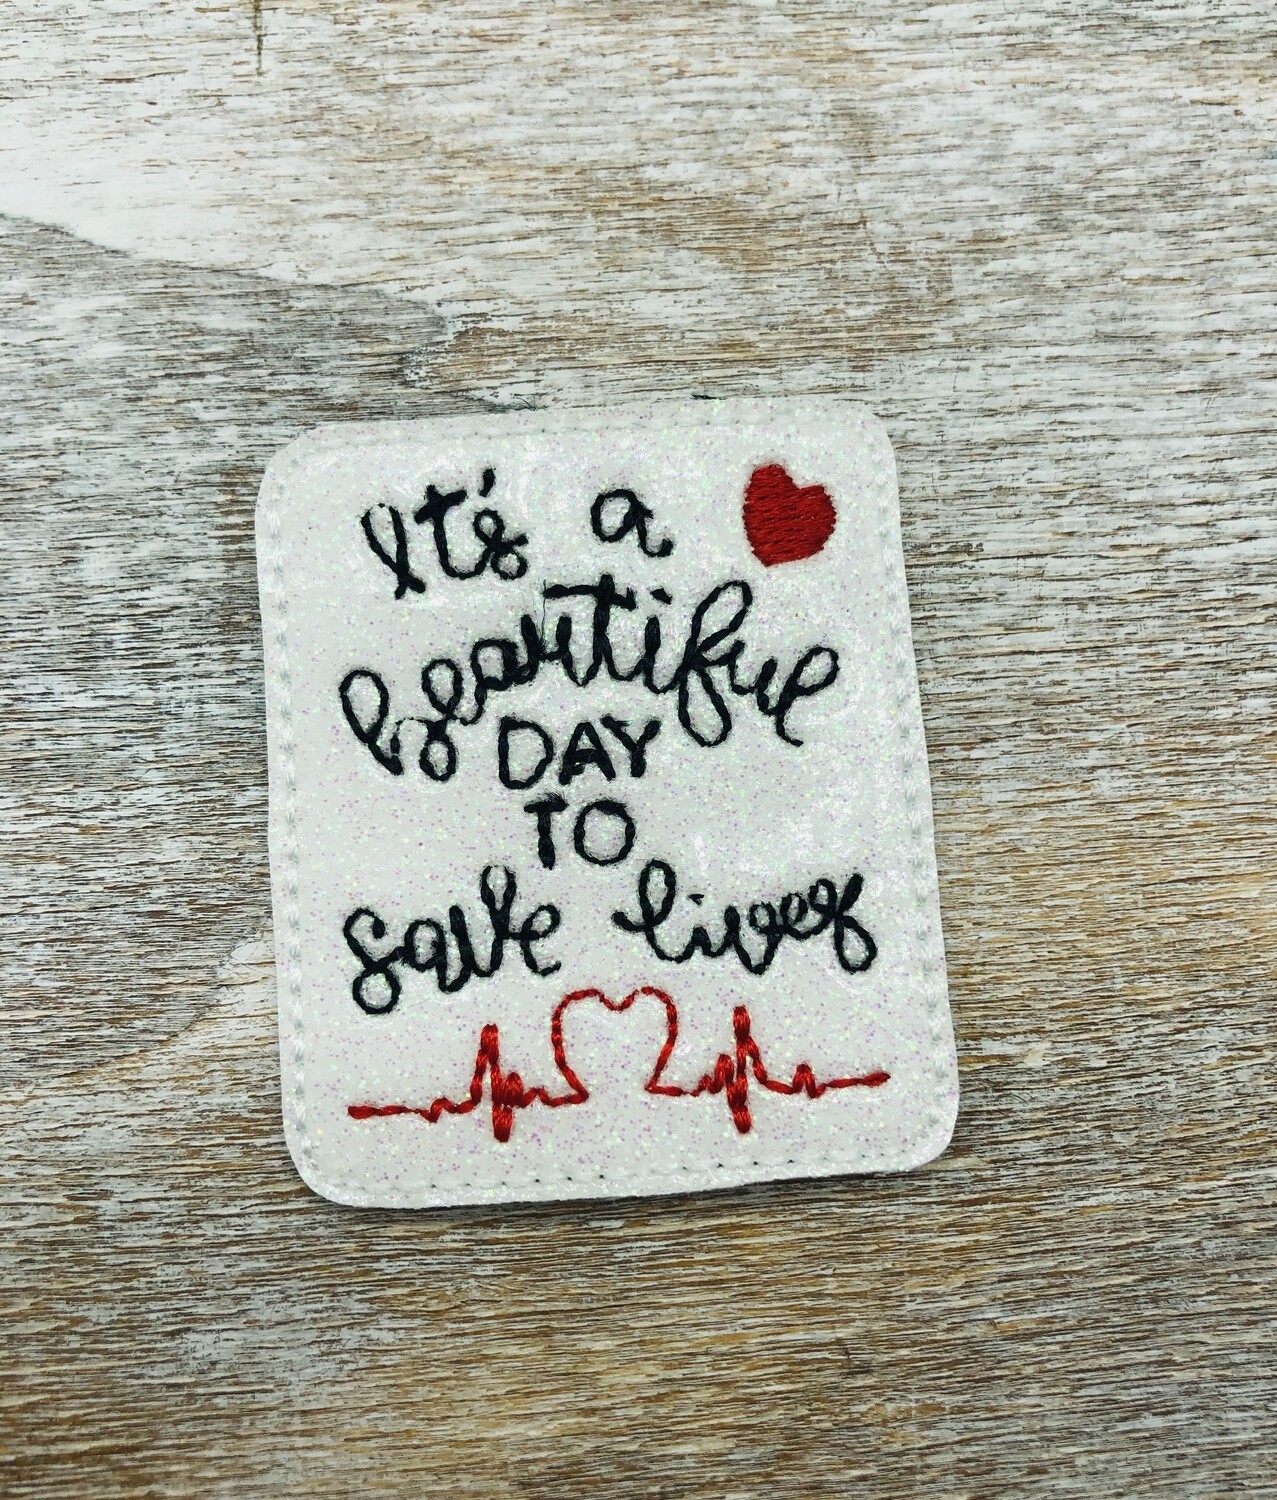 It's a
beautiful
DAY
TO
save lives